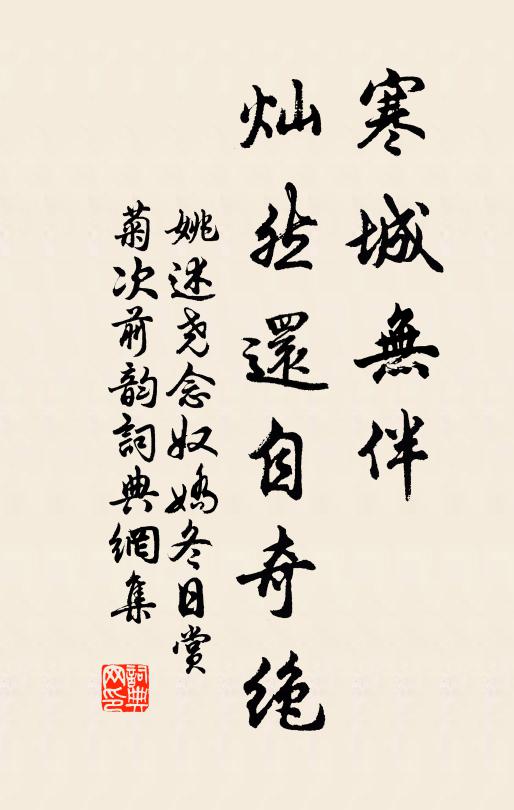 寒城無伴
灿然還自奇絶
姚述尧念奴嬌冬日賞
菊次前韵詞典網集
詞典
网印